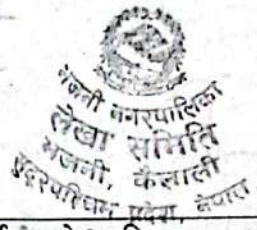 भजनी नगरपालिका
लेखा समिति
भजनी, कैलाली
सुदूरपश्चिम प्रदेश, नेपाल